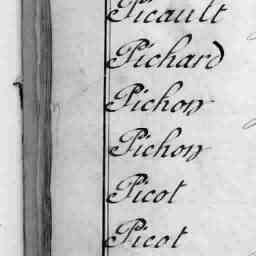 Picault
Pichard
Pichon
Pichon
Picot
Picot